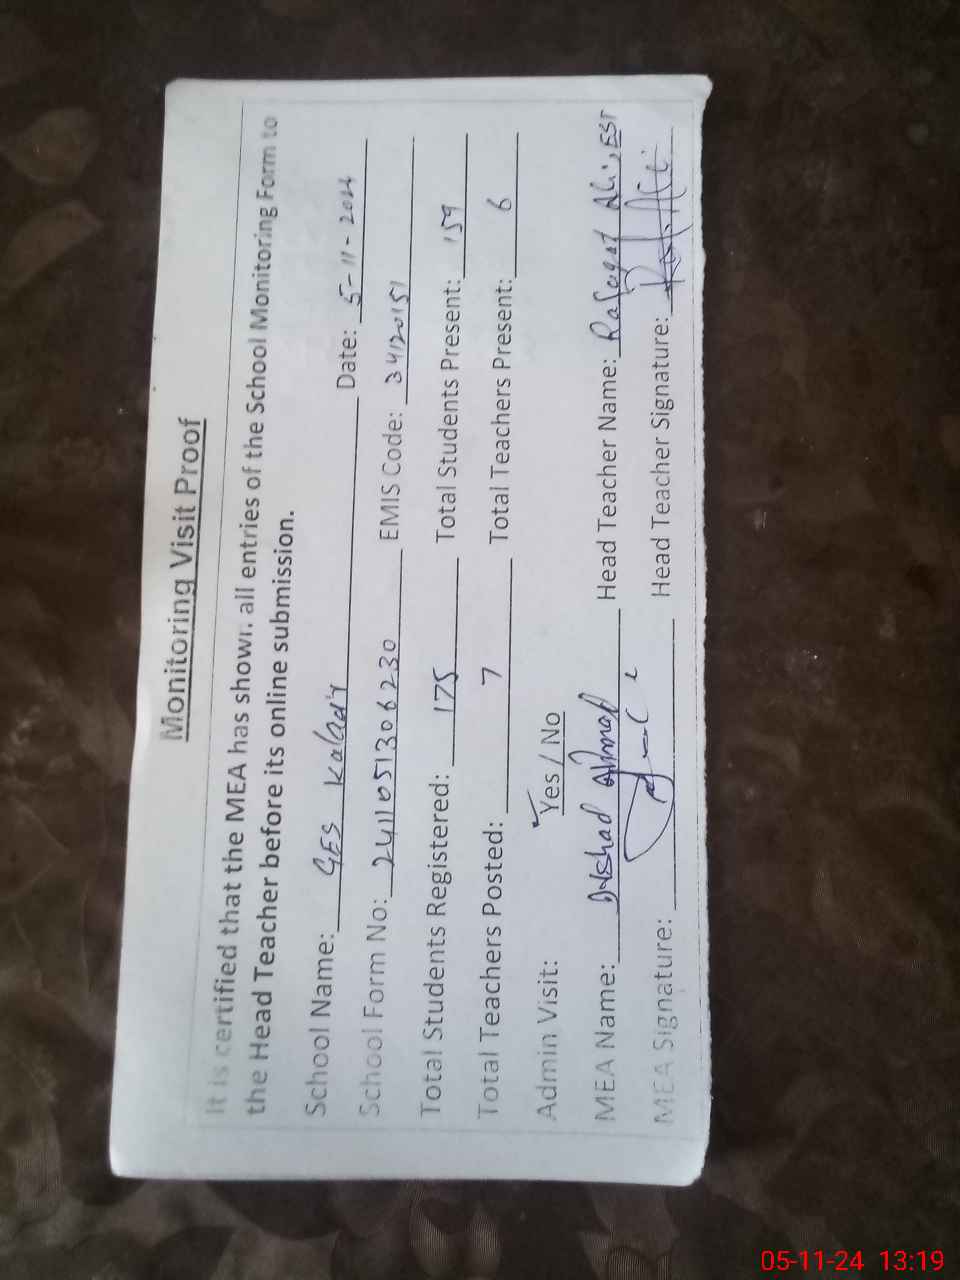 Monitoring Visit Proof
It is certified that the MEA has shown all entries of the School Monitoring Form to
the Head Teacher before its online submission.
School Name: GES Kaladry Date: 5-11-2024
School Form No: 2411051306230 EMIS Code: 34120151
Total Students Registered: 175 Total Students Present: 159
Total Teachers Posted: 7 Total Teachers Present: 6
Admin Visit: Yes / No
MEA Name: Ahmad Head Teacher Name: Rafaqat Ali, EST
MEA Signature: Head Teacher Signature:
05-11-24 13:19